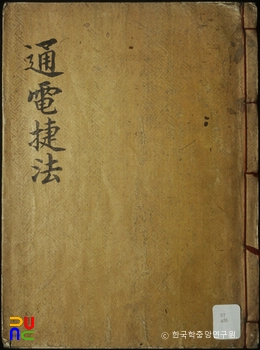 通電捷法
© 한국학중앙연구원